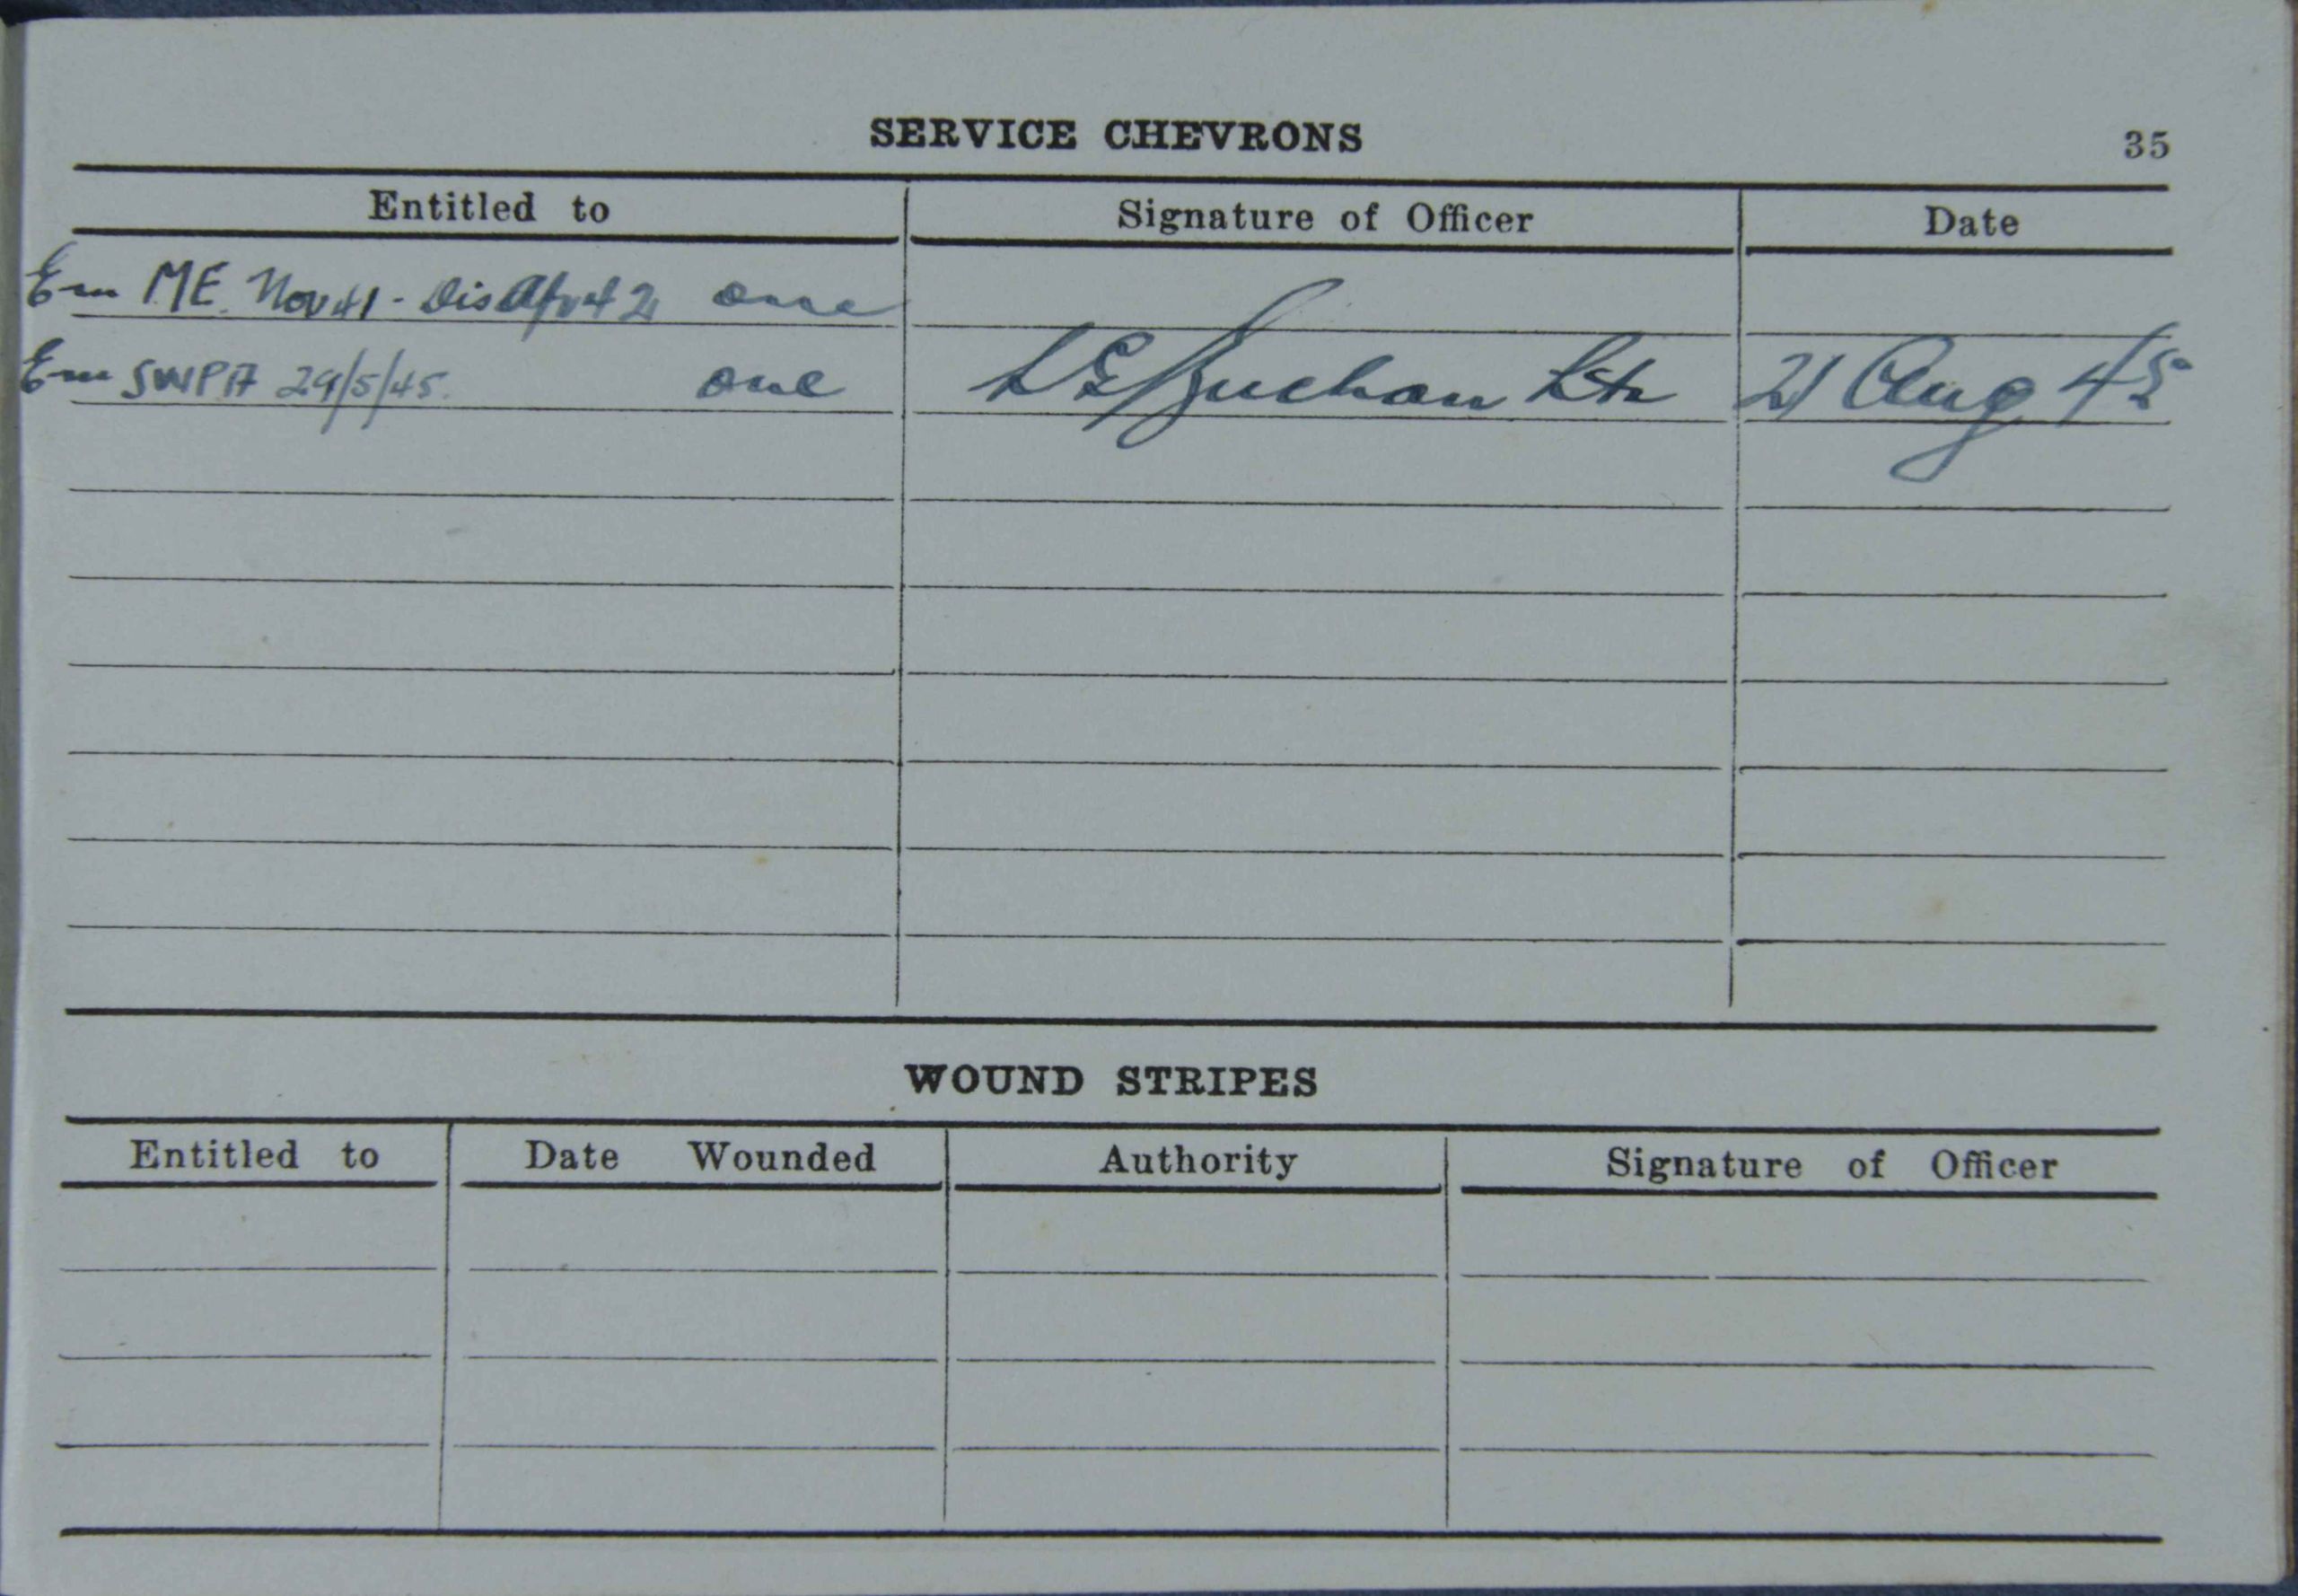 SERVICE CHEVRONS 35
Entitled to Signature of Officer Date
Em ME. Nov 41 - Dis Apr 42 one
Em SWPA 29/5/45. one Buchan 21 Aug 45
WOUND STRIPES
Entitled to Date Wounded Authority Signature of Officer